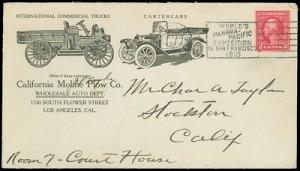 INTERNATIONAL COMMERCIAL TRUCKS
CARTERCARS
WORLD'S
PANAMA-PACIFIC
EXPOSITION
IN SAN FRANCISCO
1915
After 5 days return to
California Moline Plow Co.
WHOLESALE AUTO DEPT.
1130 SOUTH FLOWER STREET
LOS ANGELES, CAL.
Mr Chas A Taylor
Stockton
Calif
Room 7 - Court House